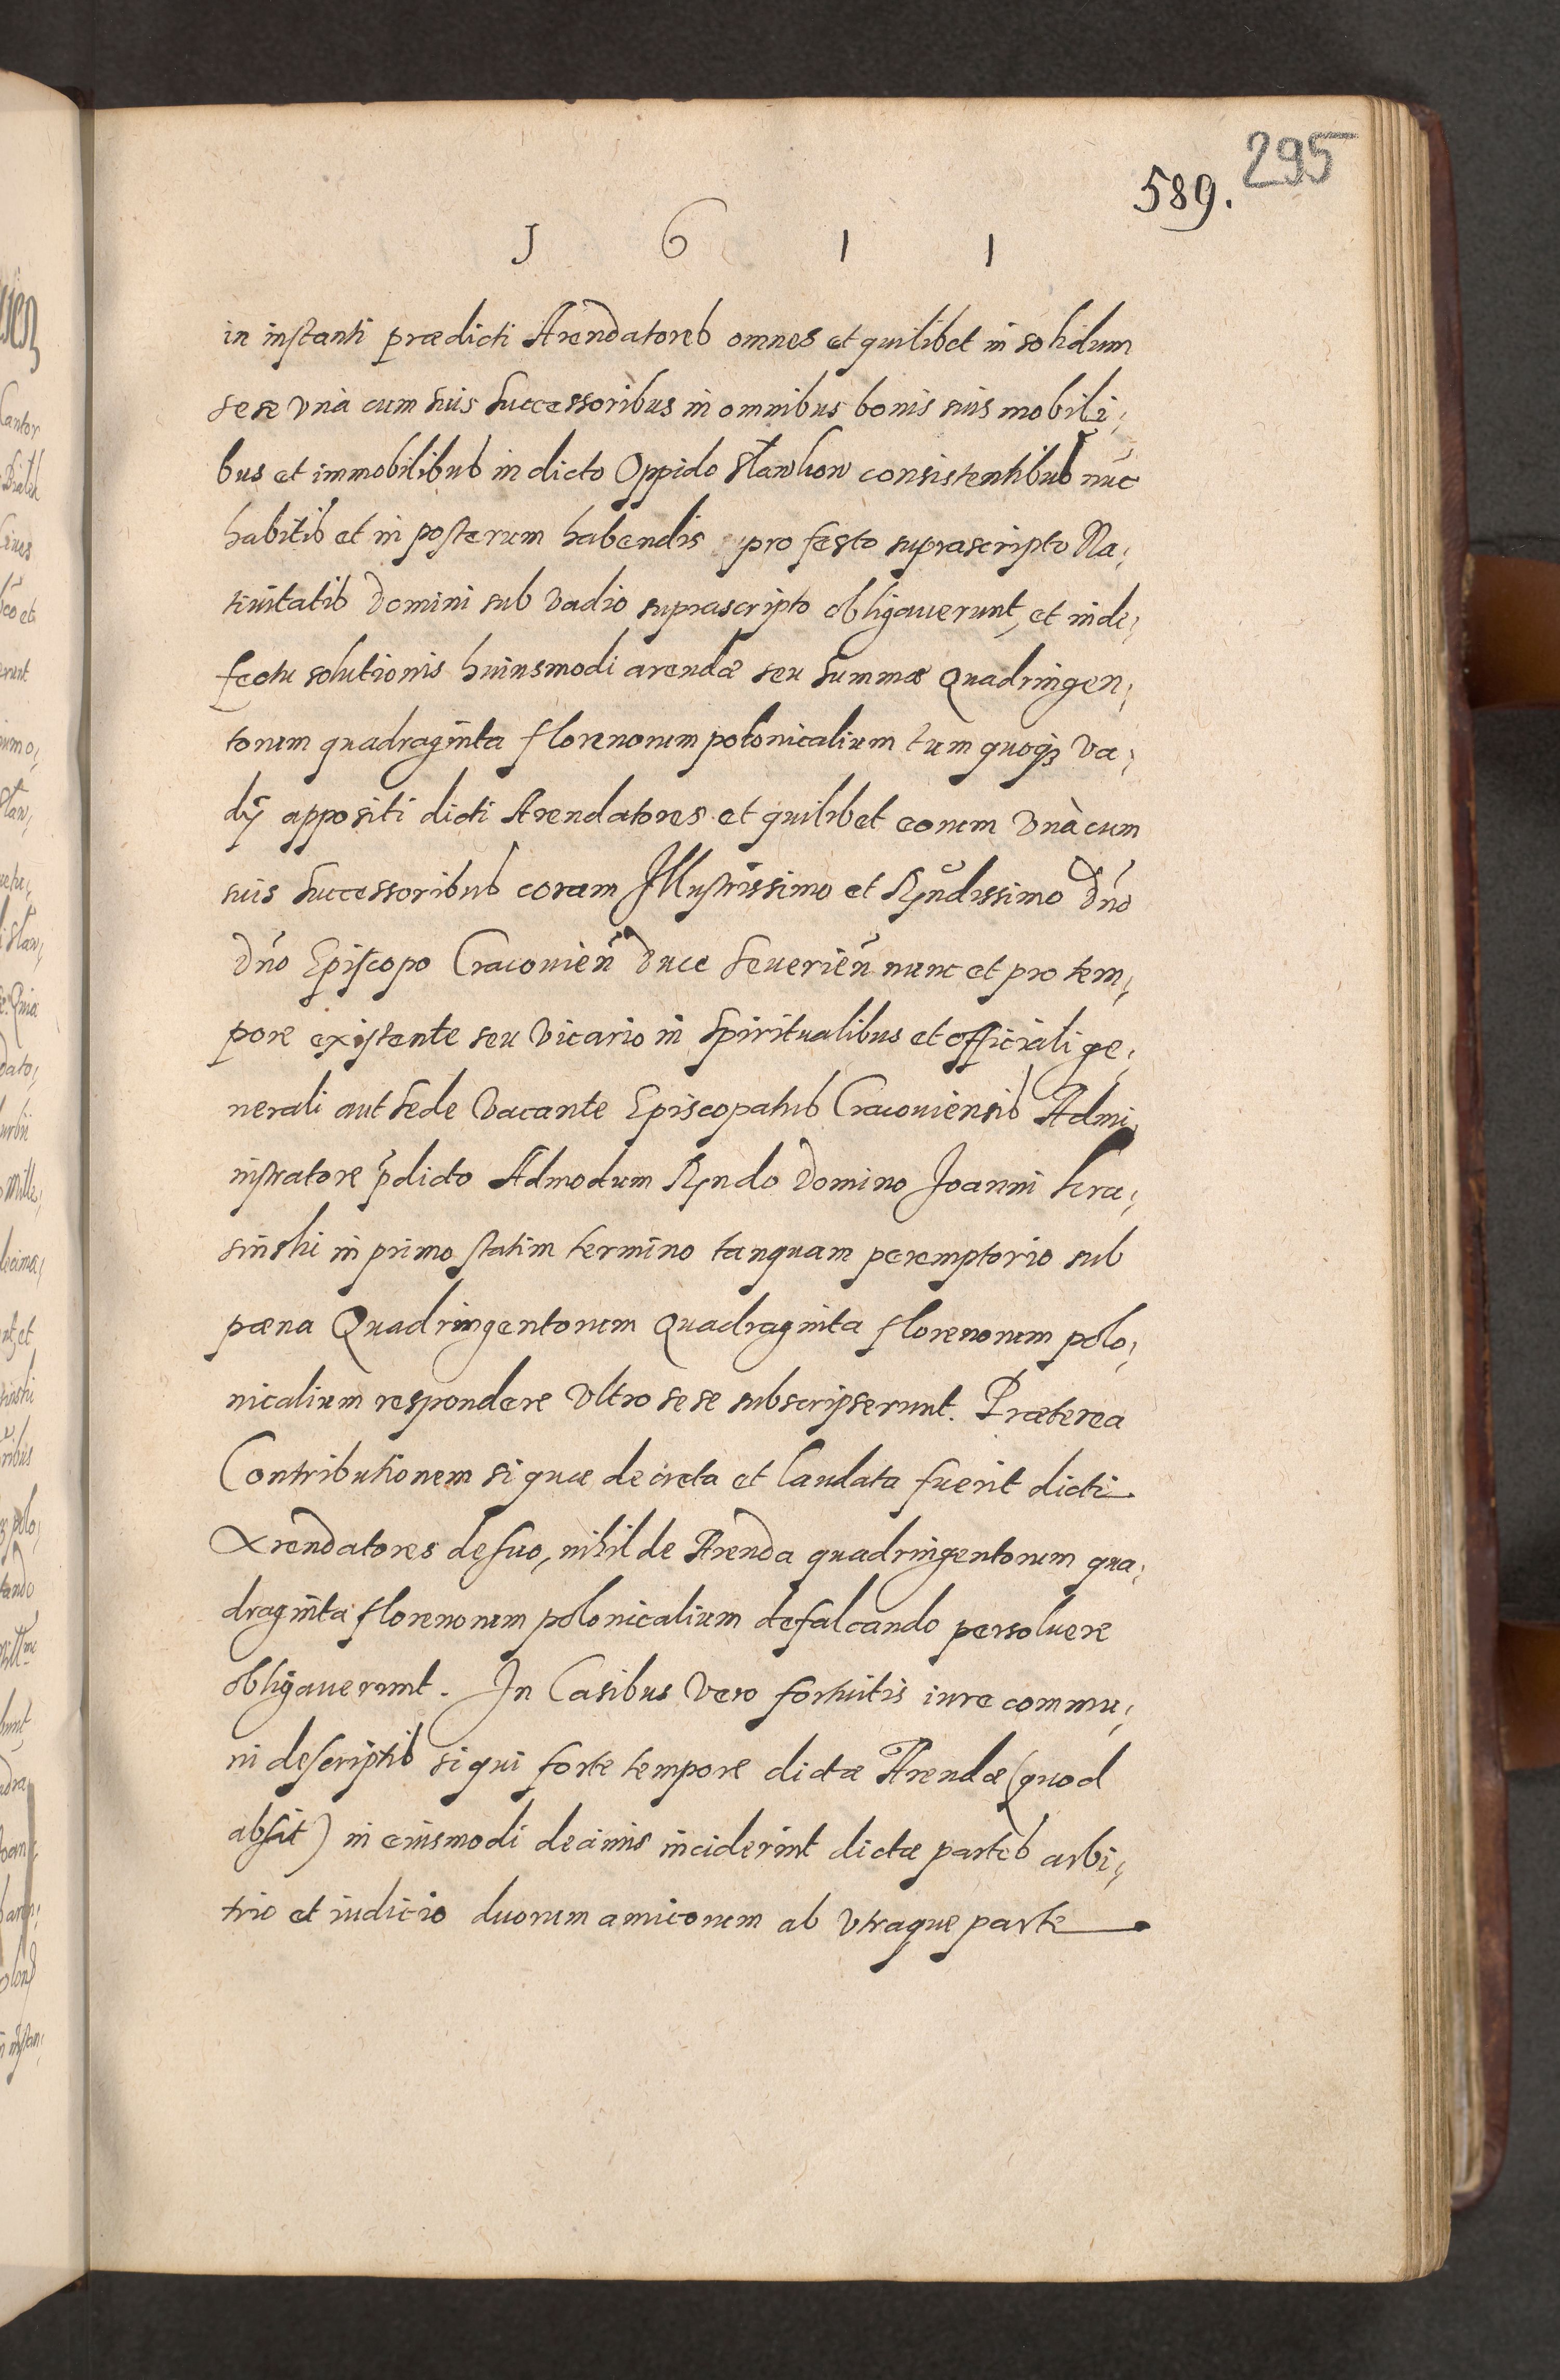 295
589.
1 6 1 1
in instanti prædicti Arendatores omnes et quilibet in solidum
sese vnà cum suis successoribus in omnibus bonis suis mobili,
bus et immobilibus in dicto Oppido Slawkow consistentibus nūc
habitis et in posterum habendis pro festo suprascripto Na,
tiuitatis Domini sub vadio suprascripto obligauerunt, et in de,
fectu solutionis huiusmodi arendæ seu summæ Quadringen,
torum quadraginta florenorum polonicalium tum quoqȝ va,
dij appositi dicti Arendatores et quilibet eorum vnà cum
suis successoribus coram Illustrissimo et Rñdissimo Dño
Dño Episcopo Cracouień Duce Seuerień nunc et pro tem,
pore existente seu Vicario in Spiritualibus et officiali ge,
nerali aut Sede Vacante Episcopatus Cracouiensis Admi,
nistratore p̄dicto Admodum Rñdo Domino Joanni Kra,
sinski in primo statim termino tanquam peremptorio sub
pæna Quadringentorum Quadraginta florenorum polo,
nicalium respondere vltro sese subscripserunt. Præterea
Contributionem si quæ decreta et laudata fuerit dicti
Arendatores de suo, nihil de Arenda quadringentorum qua,
draginta florenorum polonicalium defalcando persoluere
obligauerunt. In Casibus vero fortuitis iure commu,
ni descriptis si qui forte tempore dictæ Arendæ (quod
absit) in eiusmodi decimis inciderint dictæ partes arbi,
trio et iudicio duorum amicorum ab vtraque parte